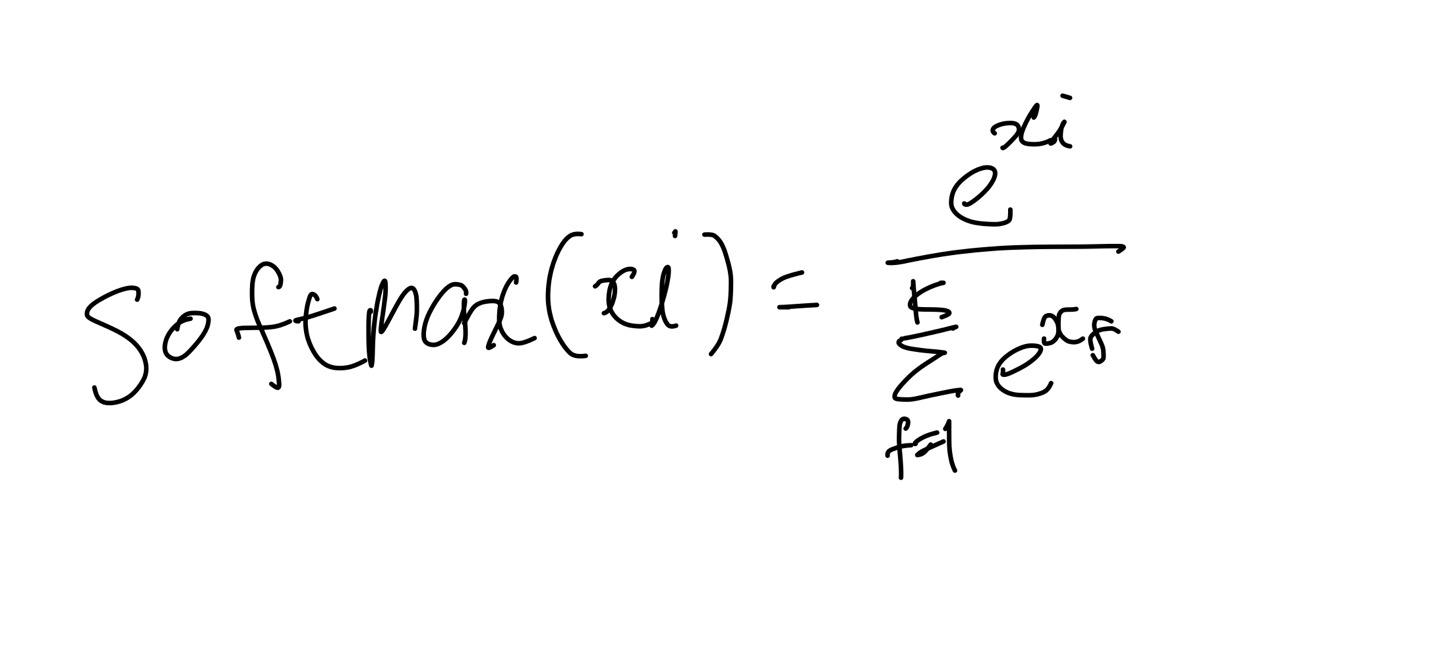 softmax(xi) = e^xi / K∑f=1 e^xf